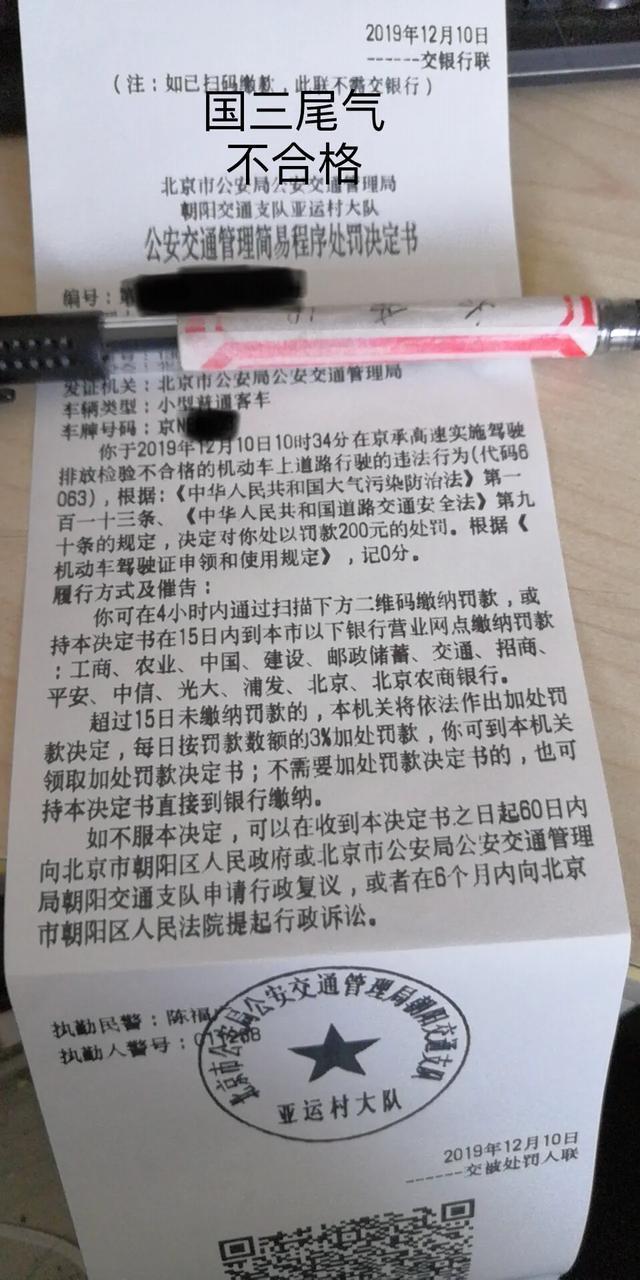 2019年12月10日
------交银行联
(注:如已扫码缴款,此联不需交银行)
国三尾气
不合格
北京市公安局公安交通管理局
朝阳交通支队亚运村大队
公安交通管理简易程序处罚决定书
编号:第
发证机关:北京市公安局公安交通管理局
车辆类型:小型普通客车
车牌号码:京N
你于2019年12月10日10时34分在京承高速实施驾驶
排放检验不合格的机动车上道路行驶的违法行为(代码6
063),根据:《中华人民共和国大气污染防治法》第一
百一十三条、《中华人民共和国道路交通安全法》第九
十条的规定,决定对你处以罚款200元的处罚。根据《
机动车驾驶证申领和使用规定》,记0分。
履行方式及催告:
你可在4小时内通过扫描下方二维码缴纳罚款,或
持本决定书在15日内到本市以下银行营业网点缴纳罚款
:工商、农业、中国、建设、邮政储蓄、交通、招商、
平安、中信、光大、浦发、北京、北京农商银行。
超过15日未缴纳罚款的,本机关将依法作出加处罚
款决定,每日按罚款数额的3%加处罚款,你可到本机关
领取加处罚款决定书;不需要加处罚款决定书的,也可
持本决定书直接到银行缴纳。
如不服本决定,可以在收到本决定书之日起60日内
向北京市朝阳区人民政府或北京市公安局公安交通管理
局朝阳交通支队申请行政复议,或者在6个月内向北京
市朝阳区人民法院提起行政诉讼。
执勤民警:陈福
执勤人警号:
北京市公安局公安交通管理局朝阳交通支队
亚运村大队
2019年12月10日
------交被处罚人联